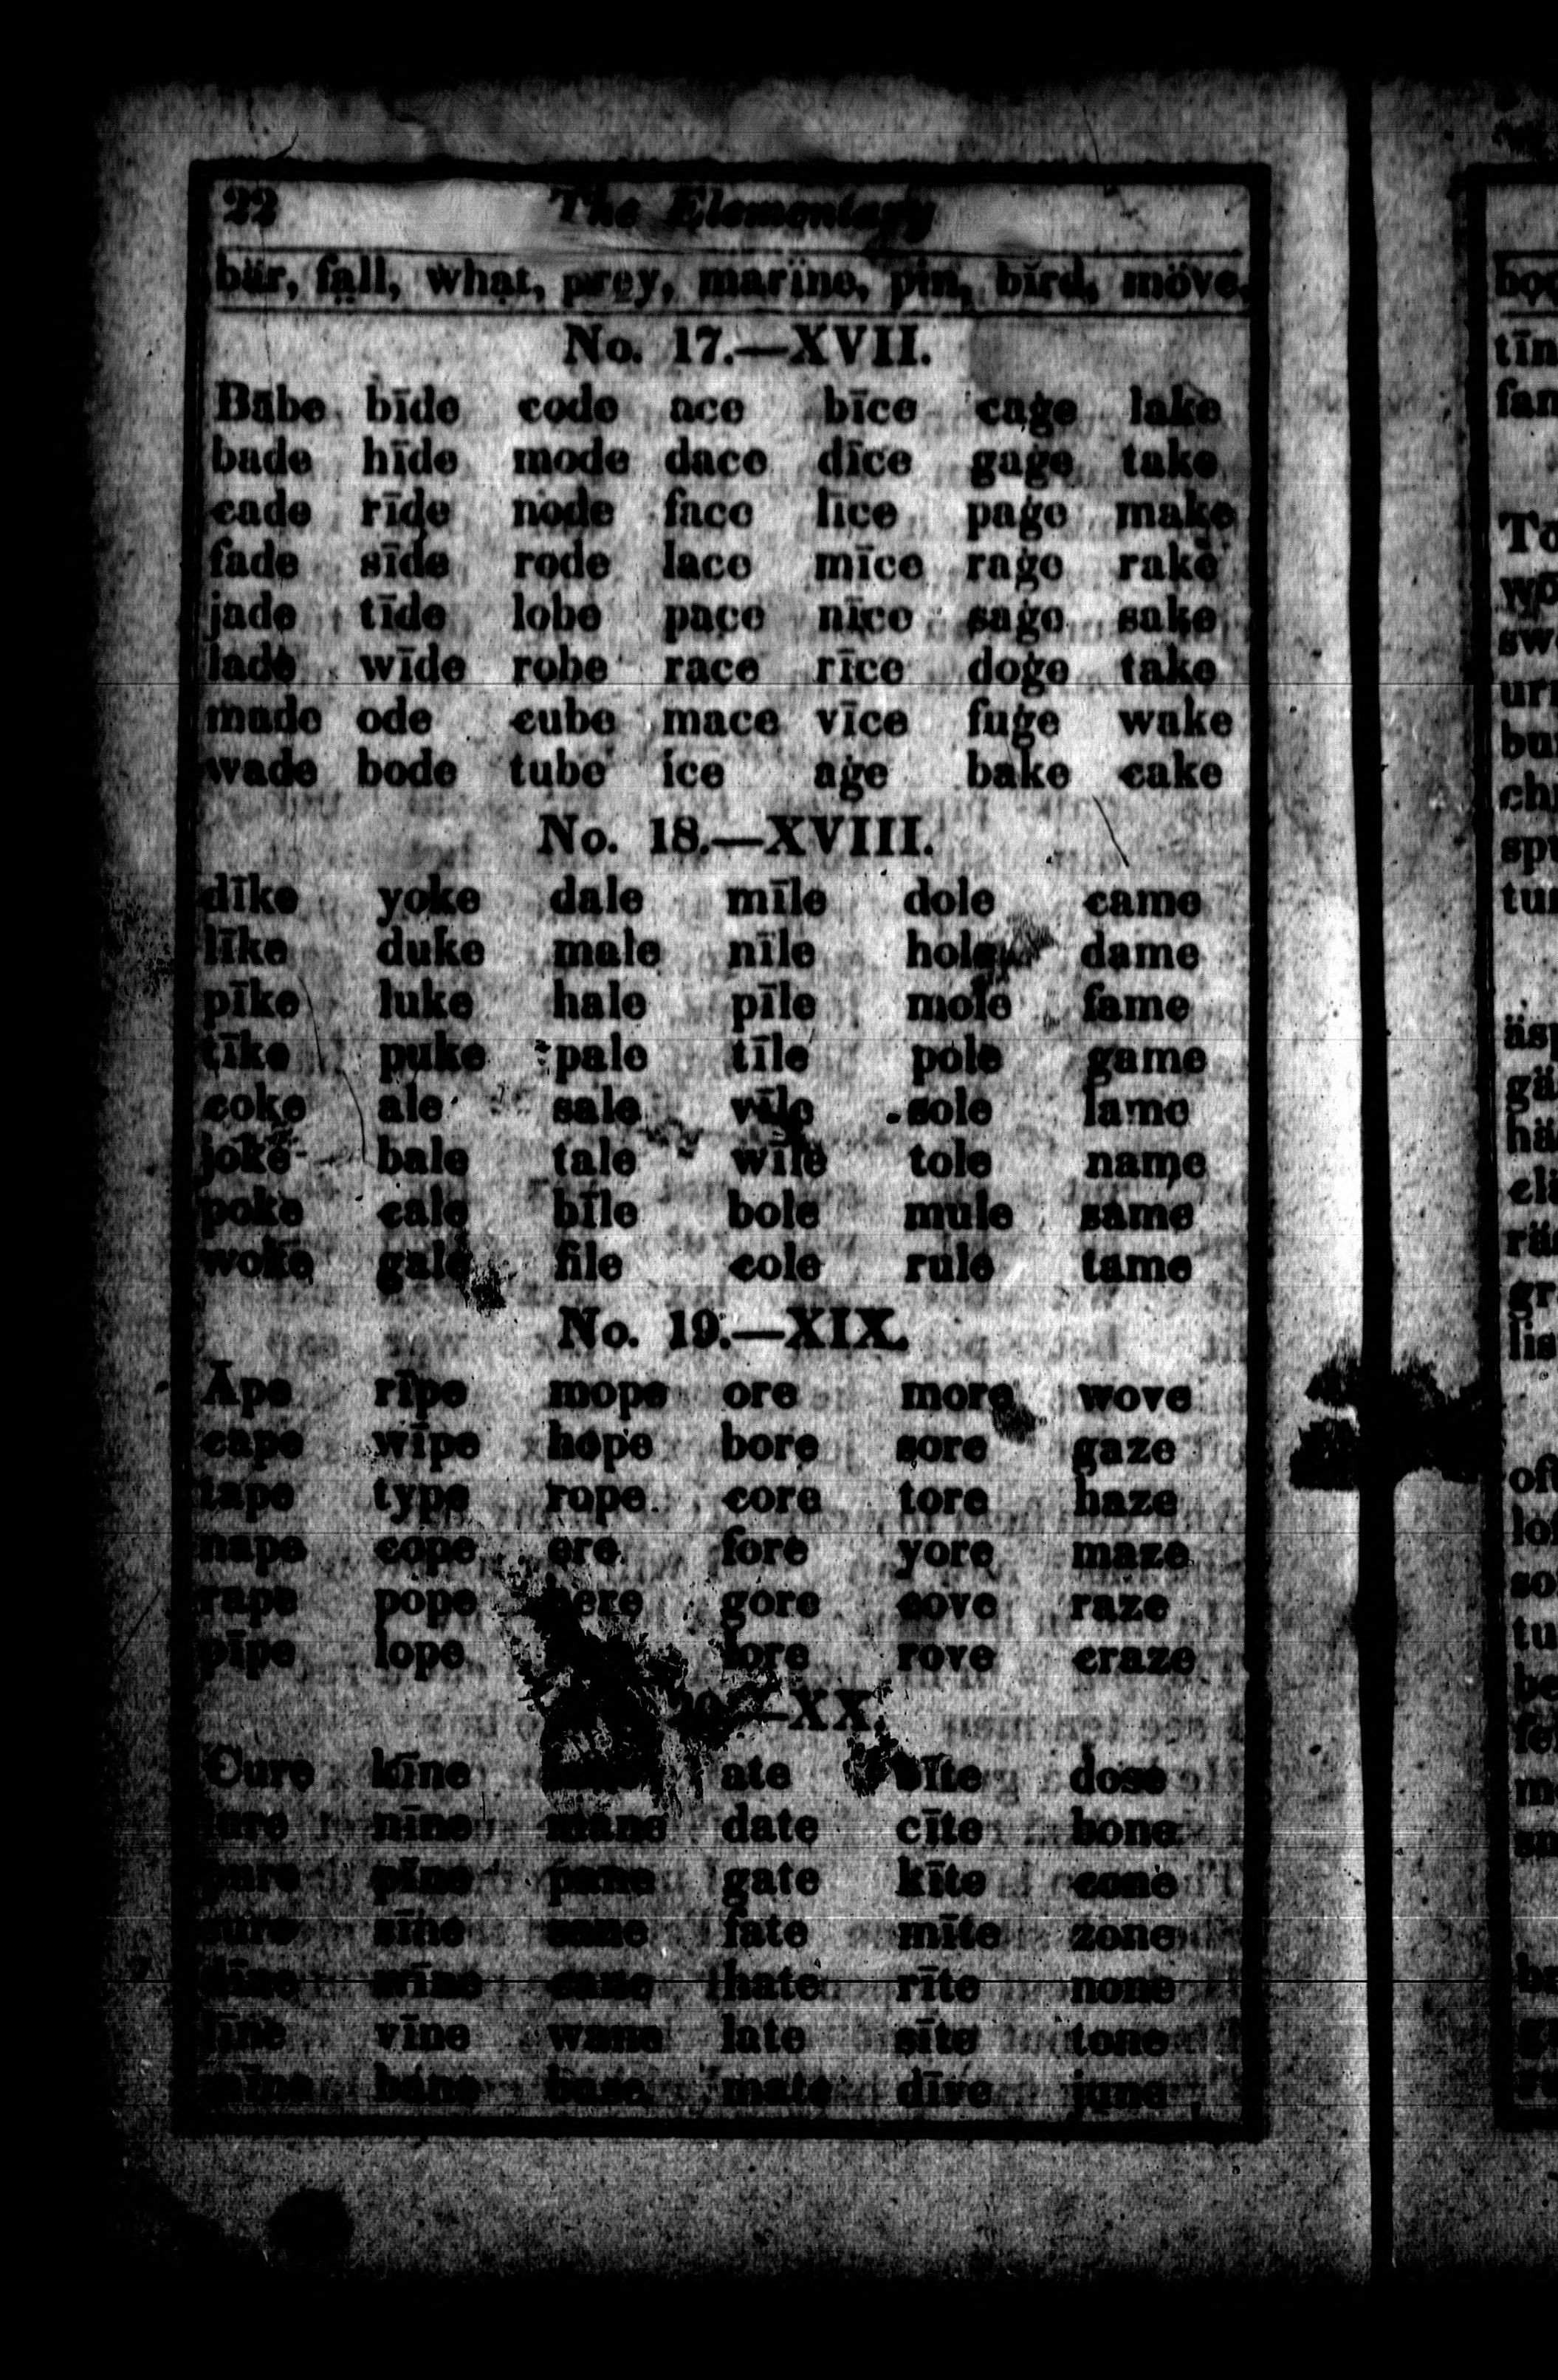 22 The Elementary
bär, fạll, whạt, prẹy, marïne, pin, bĭrd, möve.
No. 17.—XVII.
Bābe bīde code ace bīce caġe lake
bade hīde mode dace dīce gaġe take
cade rīde node face līce paġe make
fade sīde rode lace mīce raġe rake
jade tīde lobe pace nīce saġe sake
lade wīde robe race rīce doġe take
made ode cube mace vīce fuġe wake
wade bode tube īce aġe bake cake
No. 18.—XVIII.
dīke yoke dale mīle dole came
līke duke male nīle hole dame
pīke luke hale pīle mole fame
tīke puke pale tīle pole game
coke ale sale vīle sole lame
joke bale tale wīle tole name
poke cale bīle bole mule same
woke gale file cole rule tame
No. 19.—XIX.
Āpe rīpe mope ore more wove
cape wīpe hope bore sore gaze
tape type rope core tore haze
nape cope ere fore yore maze
rape pope here gore cove raze
pīpe lope lore rove craze
20.—XX.
Cure kīne ate bīte dose
lure nīne mane date cīte bone
pure pīne pane gate kīte cone
sure sīne sane fate mīte zone
dīre wīne cane hate rīte none
fīne vīne wane late sīte tone
mīne bane base mate dīve june